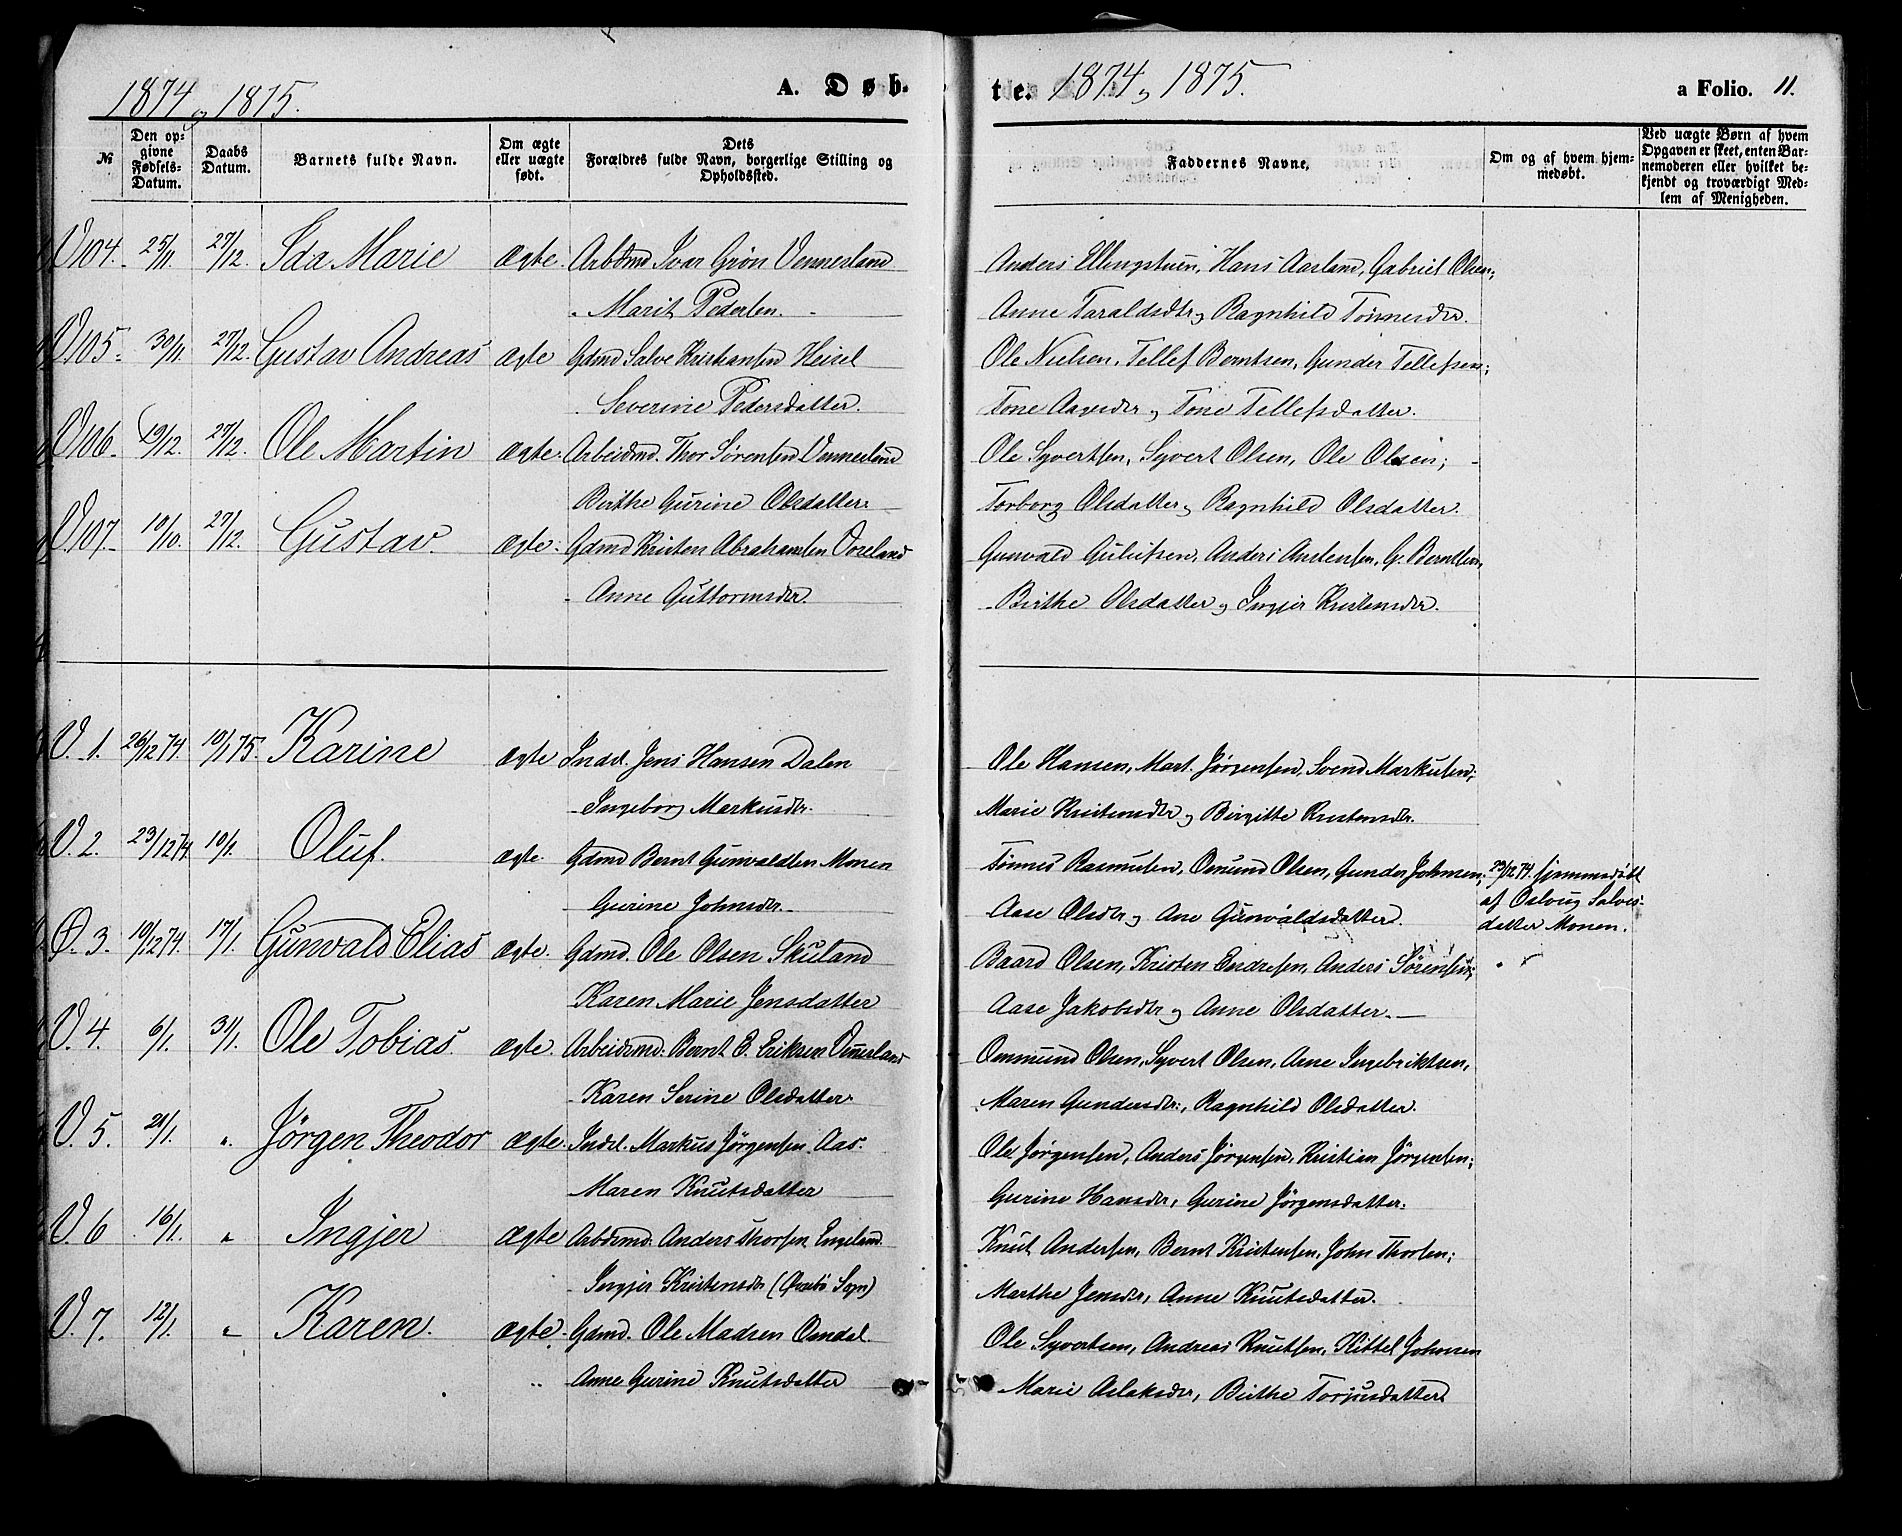 1874 og 1875.
A. Døb-
te. 1874 og 1875.
a Folio. 11.
№
Den op-
givne
Fødsels-
Datum.
Daabs
Datum.
Barnets fulde Navn.
Om ægte
eller uægte
født.
Dets
Forældres fulde Navn, borgerlige Stilling og
Opholdssted.
Faddernes Navne.
Om og af hvem hjem-
medøbt.
Ved uægte Børn af hvem
Opgaven er skeet, enten Bar-
nemoderen eller hvilket be-
kjendt og troværdigt Med-
lem af Menigheden.
V. 104. 25/11. 27/12. Ida Marie ægte. Arbdmd Ivar Grön Vennesland Anders Ellingstuen, Hans Aasland, Gabriel Olsen;
Marit Pedersen. Anne Taraldsdtr og Ragnhild Tönnesdr.
V. 105. 30/11. 27/12. Gustav Andreas ægte Gdmd Salve Kristiansen Heisel Ole Nielsen, Tellef Berntsen, Gunder Tellefsen;
Severine Pedersdatter. Tone Aavesdr og Tone Tellefsdatter.
V. 106. 19/12. 27/12. Ole Martin ægte. Arbeidsmd. Thor Sörensen Vennesland Ole Syvertsen, Syvert Olsen, Ole Olsen;
Birthe Gurine Olsdatter. Torborg Olsdatter og Ragnhild Olsdatter.
V. 107. 10/10. 27/12. Gustav. ægte. Gdmd Kristen Abrahamsen Voreland Gunvald Gulufsen, Anders Anstensen, G. Berntsen,
Anne Guttormsdr. Birthe Olsdatter og Ingjer Kristensdr.
V. 1. 26/12 74. 10/1 75. Karine ægte Inds. Jens Hansen Dalen Ole Hansen, Mart. Jörgensen, Svend Markusen;
Ingeborg Markusdr. Marie Kristensdtr og Birgitte Kristensdr.
V. 2. 23/12 74. 10/1. Oluf. ægte. Gdmd Bernt Gunvaldsen Monen Tönnes Rasmusen, Omund Olsen, Gunder Johnsen; 23/12 74. hjemmedöbt
Gurine Johnsdr. Aase Olsdtr og Ane Gunvaldsdatter. af Oslaug Salves-
datter Monen.
Ø. 3. 19/12 74. 17/1. Gunvald Elias ægte. Gdmd. Ole Olsen Skuland Baard Olsen, Kristen Endresen, Anders Sörensen; "
Karen Marie Jensdatter Aase Jakobsdr og Anne Olsdatter.
V. 4. 6/1. 31/1. Ole Tobias. ægte. Arbeidsmd. Bernt E. Eriksen Vennesland Ommund Olsen, Syvert Olsen, Arne Ingebriktsen,
Karen Serine Olsdatter. Maren Gundersdr., Ragnhild Olsdatter.
V. 5. 21/1. " Jörgen Theodor ægte. Inds. Markus Jörgensen Aas. Ole Jörgensen, Anders Jörgensen, Kristian Jörgensen;
Maren Knutsdatter Gurine Hansdr, Gurine Jörgensdatter.
V. 6 16/1. " Ingjer ægte Arbdsmd. Anders Thorsen Engeland. Knut Andersen, Bernt Kristensen, John Thorsen;
Ingjer Kristensdr (Øvrebø Sogn) Marthe Jensdr, Anne Knutsdatter.
V. 7. 12/1. " Karen. ægte. Gdmd. Ole Madsen Omdal. Ole Syvertsen, Andreas Knutsen, Kittel Johnsen
Anne Gurine Knutsdatter Marie Aslaksdr, Birthe Torjusdatter